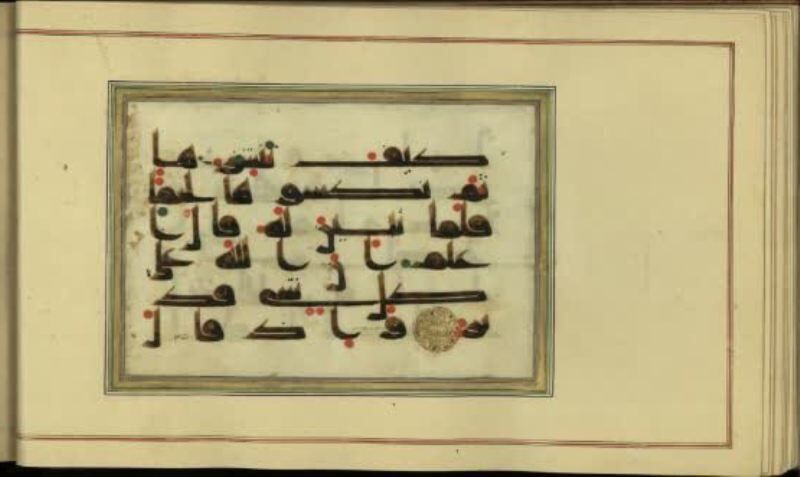 كيف ننشزها
ثم نكسوها لحما
فلما تبين له قال ا
علم ا ن ا لله على
كل شى قد
ير و ا ذ قا ل